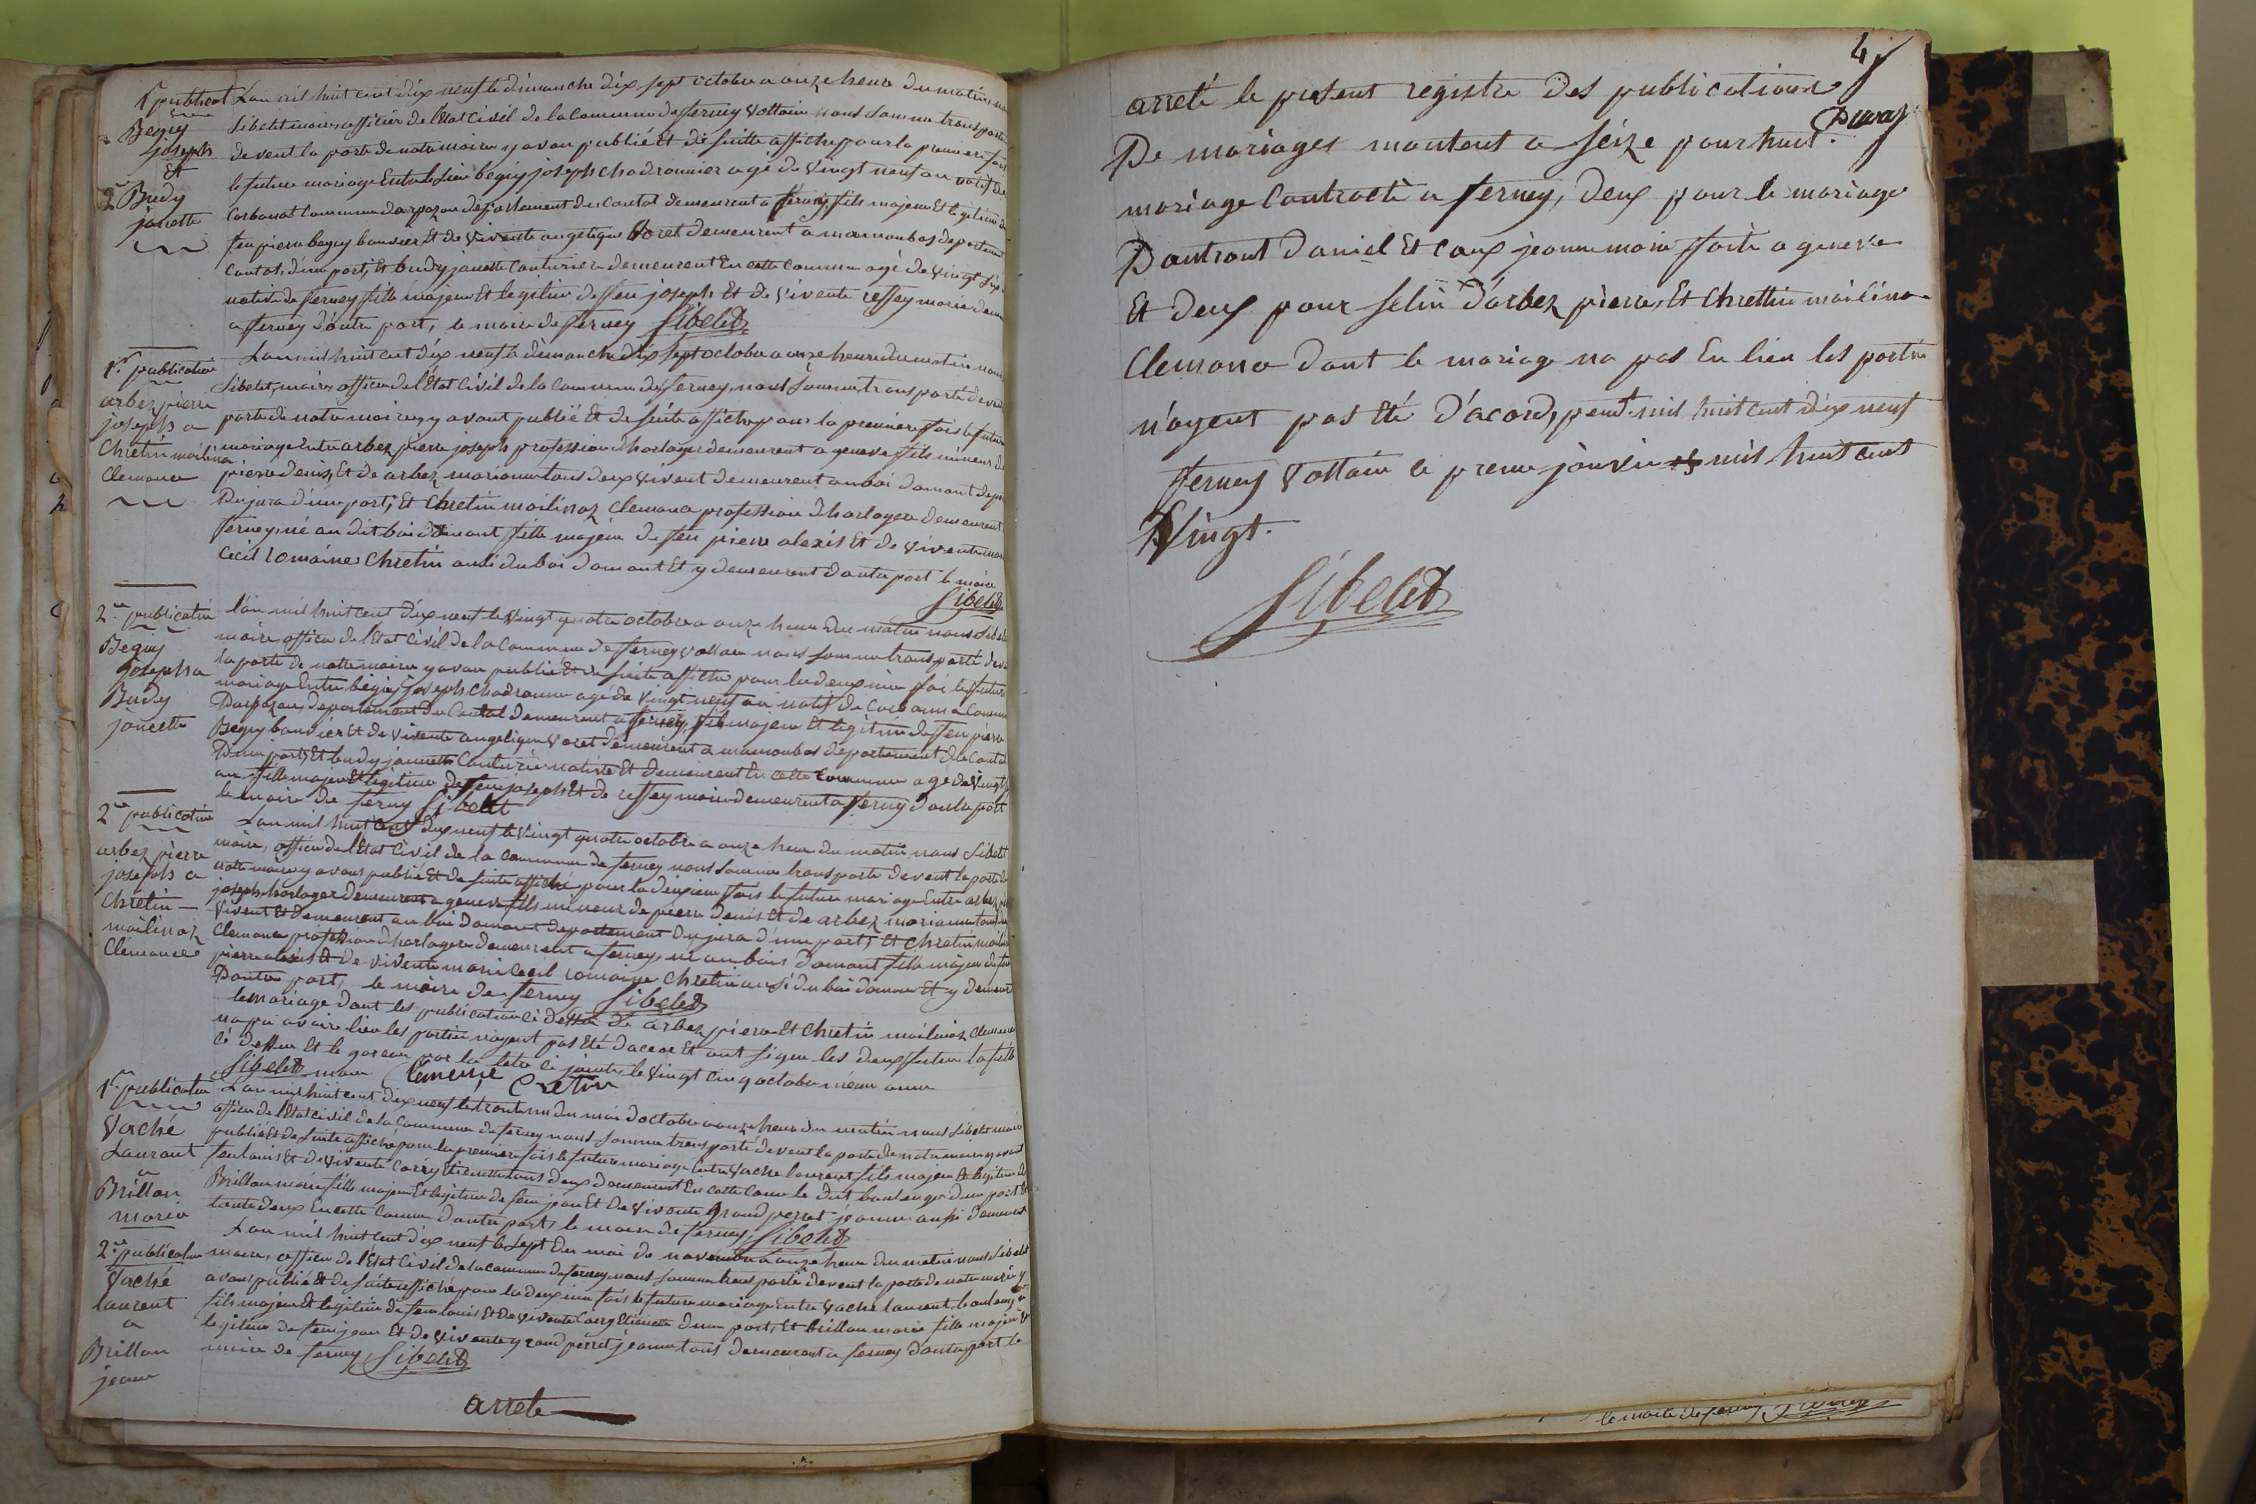 1re publicat
Begey
joseph
Et
2 Budy
janette
L'an mil huit cent dix neuf le dimanche dix sept octobre a onze heure du matin nous
Sibelet maire officier de l'Etat Civil de la Commune de ferney Voltaire nous somme transporté
devent la porte de notre mairie y avon publié Et de suitte affiche pour la premiere fois
le future mariage Entre le sieur begey joseph chadronnier agé de Vingt neuf an natif de
Carbonat Commune darpazon département du cantal demeurent a ferney fils majeur Et legitime de
feu pierre begey bouvier Et de Vivente angelique Voret demeurent a mamoubas departement
cantal, d'une part, Et budy janette Couturiere demeurent En cette commune agé de Vingt six
native de ferney fille majeur Et legitime de feu joseph Et de Vivente reffey marie demeurent
a ferney d'autre part, le maire de ferney Sibelet
1re publication
arbez pierre
joseph a
Chretin mailinaz
Clemance
L'an mil huit cent dix neuf le dimanche dix sept octobre a onze heure du matin nous
Sibelet, maire, officier de l'Etat Civil de la Commune de ferney, nous somme transporté devent
porte de notre mairie, y avont publié Et de suite affiche pour la premiere fois le future
mariage Entre arbez pierre joseph profession d'horloger demeurent a geneve fils mineur de
pierre denis, Et de arbez marianne tous deux Vivent demeurent au boi damont dep
Du jura d'une part, Et Chretin mailinaz Clemance profession d'horlogere demeurent
ferney, né au dit boi damont fille majeur de feu pierre alexis Et de Vivente marie
Cecil romaine Chretin ausi du boi damont Et y demeurent d'autre part le maire
Sibelet
2me publication
Begey
joseph a
Budy
janette
L'an mil huit cent dix neuf le Vingt quatre octobre a onze heure du matin nous Sibelet
maire officier de l'Etat Civil de la Commune de ferney voltaire nous somme transporté devent
la porte de notre mairie y avon publié Et de suite affiche pour la deuxieme foi le future
mariage Entre begey joseph chadronnier agé de Vingt neuf an natif de Carbonna Commune
Darpazon, departement du Cantal demeurent a ferney, fils majeur Et legitime de feu pierre
Begey bouvier Et de Vivente angelique Voret demeurent a mamoubas departement du Cantal
D'une part, Et budy janette Couturiere native Et demeurent En cette Commune agé de Vingt
an fille majeur Et legitime de feu joseph Et de reffey marie demeurent a ferney d'autre part
le maire de ferney Sibelet
2me publication
arbez pierre
joseph a
Chretin
mailinaz
Clémance
L'an mil huit cent dix neuf le Vingt quatre octobre a onze heure du matin nous Sibelet
maire, officier de l'Etat Civil de la Commune de ferney nous somme transporté devent la porte de
notre mairie y avons publié Et de suite affiché pour la deuxieme fois le future mariage Entre arbez
joseph, horloger demeurent a geneve fils mineur de pierre denis Et de arbez marianne tous deux
Vivent Et demeurent au boi damont departement du jura d'une part, Et Chretin mailinaz
Clemance profession d'horlogere demeurent a ferney, né au bois damont fille majeur de feu
pierre alexis Et de Vivente marie Cecil romaine Chretin ausi du boi damon Et y demeurent
D'autre part, le maire de ferney Sibelet
le mariage dont les publication ci dessu de arbez pierre Et Chretin mailinaz Clemance
na pa avoire lieu les partie nayent pas Eté dacor Et ont signe les deux future la fille
ci dessu Et le garcon par la letre ci jointe, le Vingt cinq octobre meme anne
Sibelet maire Clemence Cretin
1re publication
Vaché
Laurant
a
Brillon
marie
L'an mil huit cent dix neuf le trente un du moi d'octobre a onze heure du matin nous Sibelet maire
officier de l'Etat civil de la Commune de ferney nous somme transporté devent la porte de notre mairie y avont
publié Et de suite affiché pour la premiere fois le future mariage Entre Vache laurent fils majeur Et legitime de
feu louis Et de Vivente Carry Etienette tous deux demeurent En cette Comune le dit boulanger d'une part Et
Brillon marie fille majeur Et legitime de feu jean Et de Vivente grand perret jeanne ausi demeurent
toute deux En cette Comune d'autre part, le maire de ferney, Sibelet
2me publication
Vaché
laurent
a
Brillon
jeane
L'an mil huit cent dix neuf le sept du moi de novembre a onze heure du matin nous Sibelet
maire, officier de l'Etat Civil de la commune de ferney nous somme transporté devent la porte de notre mairie y
avons publié Et de suite affiché pour la deuxieme fois le future mariage Entre Vaché laurent boulanger
fils majeur Et legitime de feu louis Et de Vivente Carry Etienette d'une part, Et brillon marie fille majeur Et
legitime de feu jean Et de Vivente grand perret jeanne tous demeurent a ferney d'autre part le
maire de ferney Sibelet
arrete
4
arreté le present registre des publications
Duvaz
De mariages montent a seize pour huit
mariage Contracté a ferney, deux pour le mariage
Dautrant Daniel Et caux jeanne marie faite a geneve
Et deux pour selui d'arbez pierre, Et Chrettin mailinaz
Clemance dont le mariage na pas Eu lieu les partie
n'ayent pas Eté d'acord, pendt mil huit cent dix neuf
ferney Voltaire le premie janvier mil huit cent
Vingt.
Sibelet
le maire de ferney